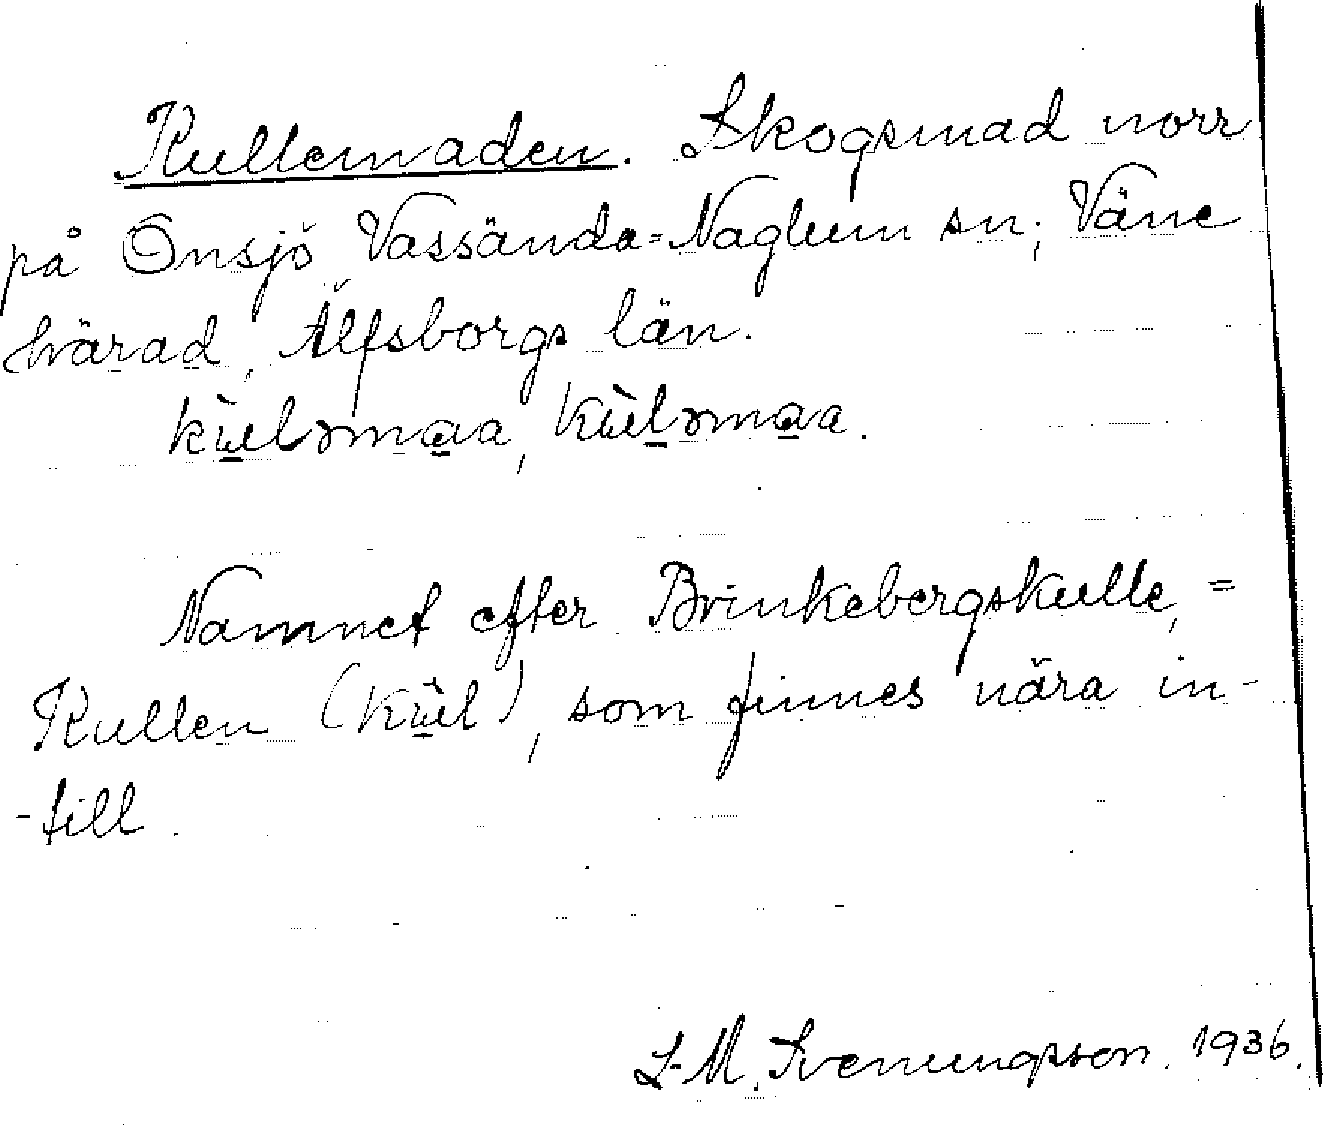 Kullemaden. Skogsmad norr
på Onsjö, Vassända-Naglum sn; Väne
härad, Älfsborgs län.
kùlǝmaa, kùlǝmaa.
Namnet efter Brinkebergskulle, =
Kullen (kùl), som finnes nära in-
-till.
S-M. Svenungsson. 1936.